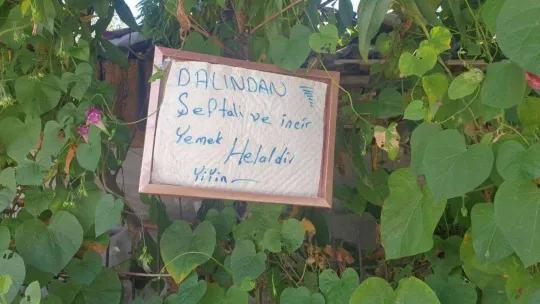 DALINDAN
Şeftali ve incir
Yemek Helaldir
Yiyin